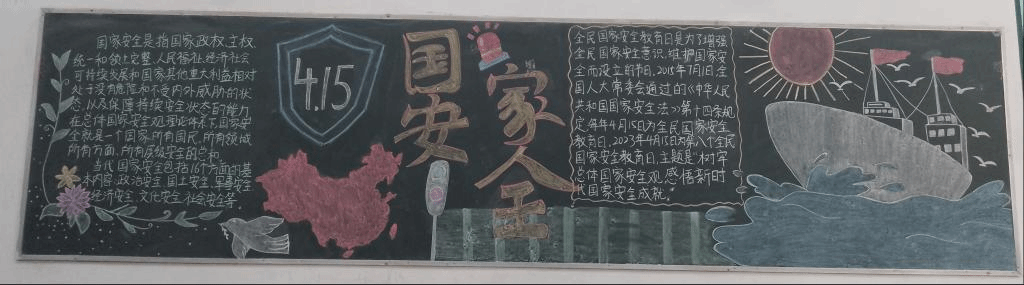 国家安全是指国家政权、主权、
统一和领土完整、人民福祉、经济社会
可持续发展和国家其他重大利益相对
处于没有危险和不受内外威胁的状
态,以及保障持续安全状态的能力。
在总体国家安全观理论体系下,国家安
全就是一个国家所有国民、所有领域
所有方面、所有层级安全的总和。
当代国家安全包括16个方面的基
本内容:政治安全 国土安全 军事安全
经济安全 文化安全 社会安全等
4.15
国家安全
人
全民国家安全教育日是为了增强
全民国家安全意识,维护国家安
全而设立的节日。2015年7月1日,全
国人大常委会通过的《中华人民
共和国国家安全法》第十四条规
定每年4月15日为全民国家安全
教育日。2023年4月15日为第八个全民
国家安全教育日,主题是
总体国家安全观 感悟新时
代国家安全成就。"